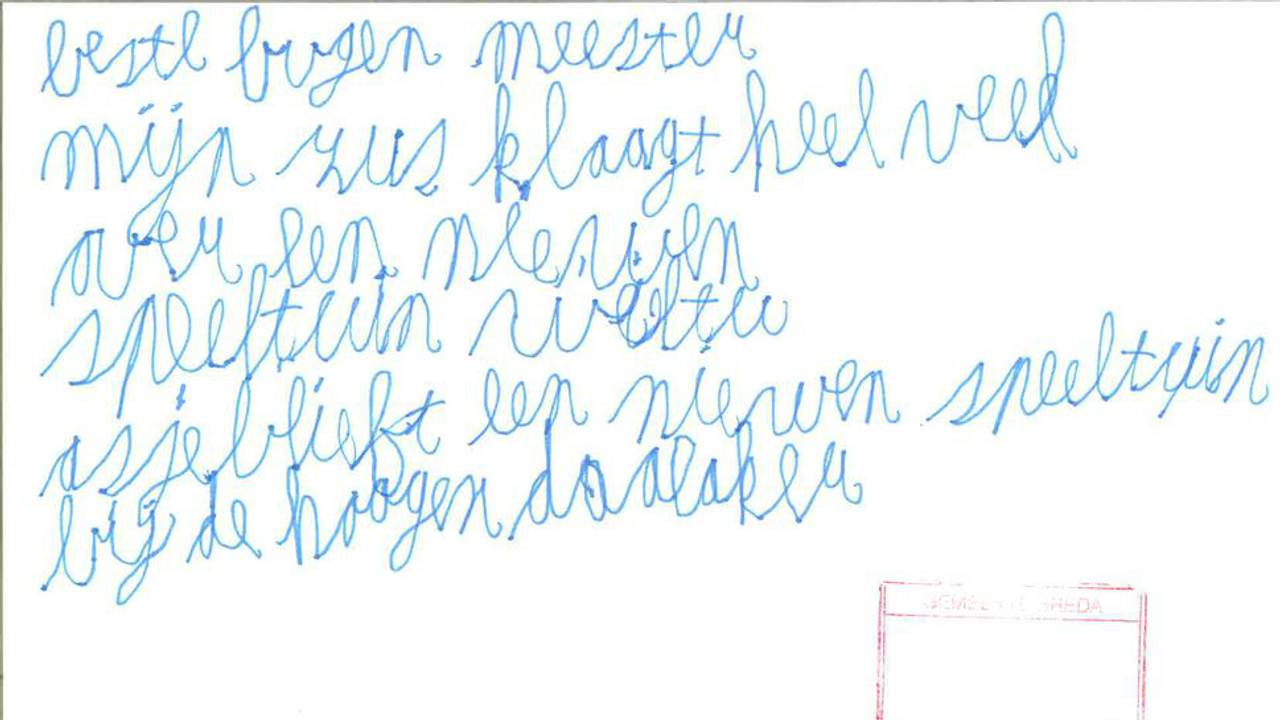 beste burgen meester
mijn zus klaagt heel veel
over een niewen
speeltuin
asjeblieft een niewen speeltuin
bij de hoogen daalaker
GEMEENTE BREDA